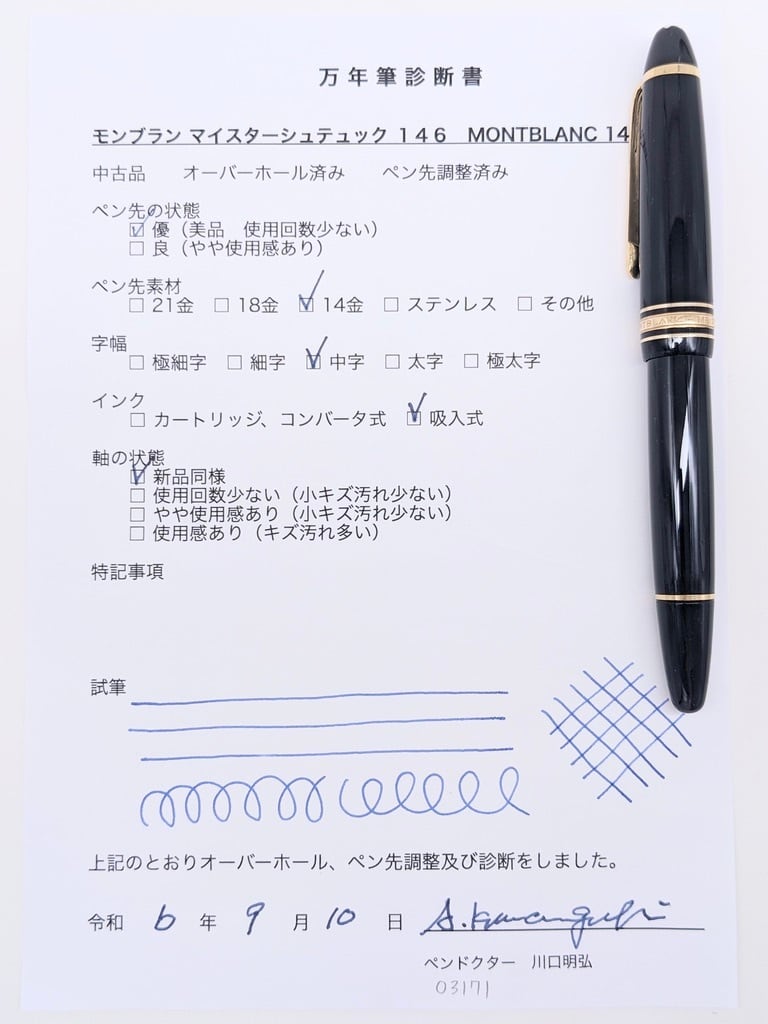 万年筆診断書
モンブラン マイスターシュテュック 146 MONTBLANC 14
中古品 オーバーホール済み ペン先調整済み
ペン先の状態
☑ 優（美品 使用回数少ない）
□ 良（やや使用感あり）
ペン先素材
□ 21金 □ 18金 ☑ 14金 □ ステンレス □ その他
字幅
□ 極細字 □ 細字 ☑ 中字 □ 太字 □ 極太字
インク
□ カートリッジ、コンバータ式 ☑ 吸入式
軸の状態
☑ 新品同様
□ 使用回数少ない（小キズ汚れ少ない）
□ やや使用感あり（小キズ汚れ少ない）
□ 使用感あり（キズ汚れ多い）
特記事項
試筆
上記のとおりオーバーホール、ペン先調整及び診断をしました。
令和 6 年 9 月 10 日
ペンドクター 川口明弘
03171